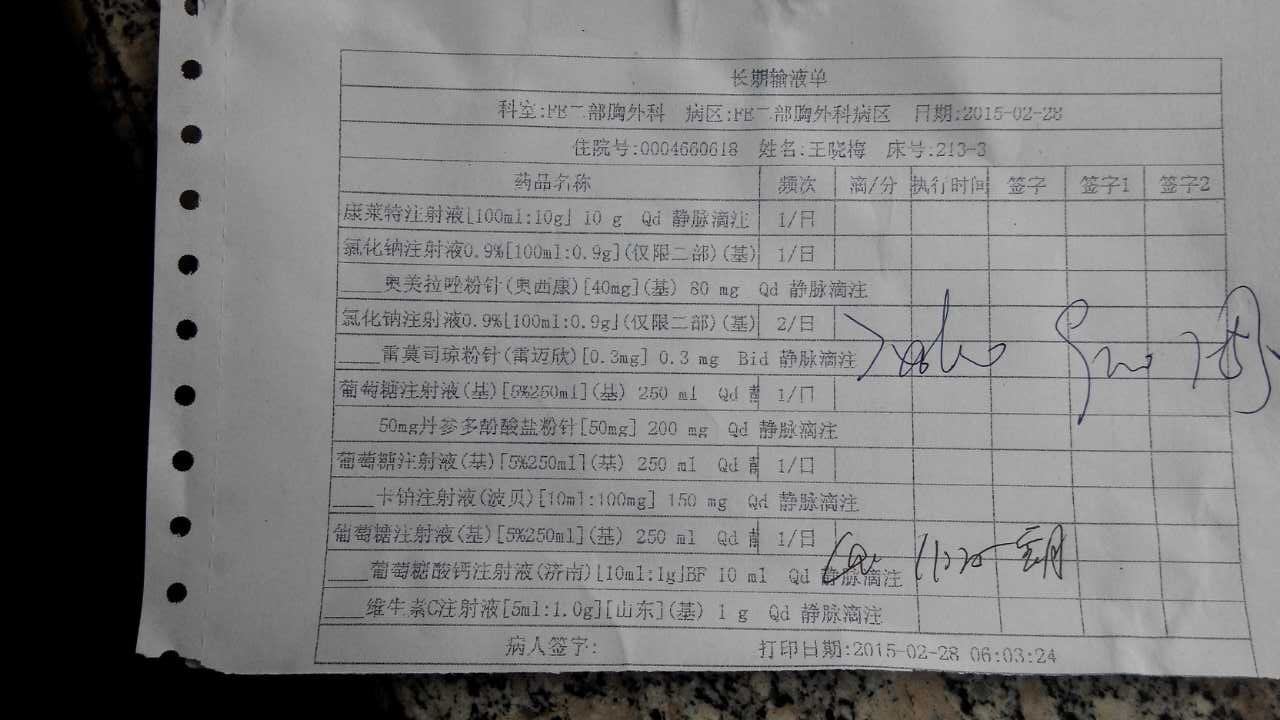 长期输液单
科室:FE二部胸外科 病区:FE二部胸外科病区 日期:2015-02-28
住院号:0004660618 姓名:王晓梅 床号:213-3
药品名称 频次 滴/分 执行时间 签字 签字1 签字2
康莱特注射液[100ml:10g] 10 g Qd 静脉滴注 1/日
氯化钠注射液0.9%[100ml:0.9g](仅限二部)(基) 1/日
____奥美拉唑粉针(奥西康)[40mg](基) 80 mg Qd 静脉滴注
氯化钠注射液0.9%[100ml:0.9g](仅限二部)(基) 2/日
____雷莫司琼粉针(雷迈欣)[0.3mg] 0.3 mg Bid 静脉滴注
葡萄糖注射液(基)[5%250ml](基) 250 ml Qd 1/日
50mg丹参多酚酸盐粉针[50mg] 200 mg Qd 静脉滴注
葡萄糖注射液(基)[5%250ml](基) 250 ml Qd 1/日
____卡铂注射液(波贝)[10ml:100mg] 150 mg Qd 静脉滴注
葡萄糖注射液(基)[5%250ml](基) 250 ml Qd 1/日
____葡萄糖酸钙注射液(济南)[10ml:1g]BF 10 ml Qd 静脉滴注
____维生素C注射液[5ml:1.0g][山东](基) 1 g Qd 静脉滴注
病人签字: 打印日期:2015-02-28 06:03:24